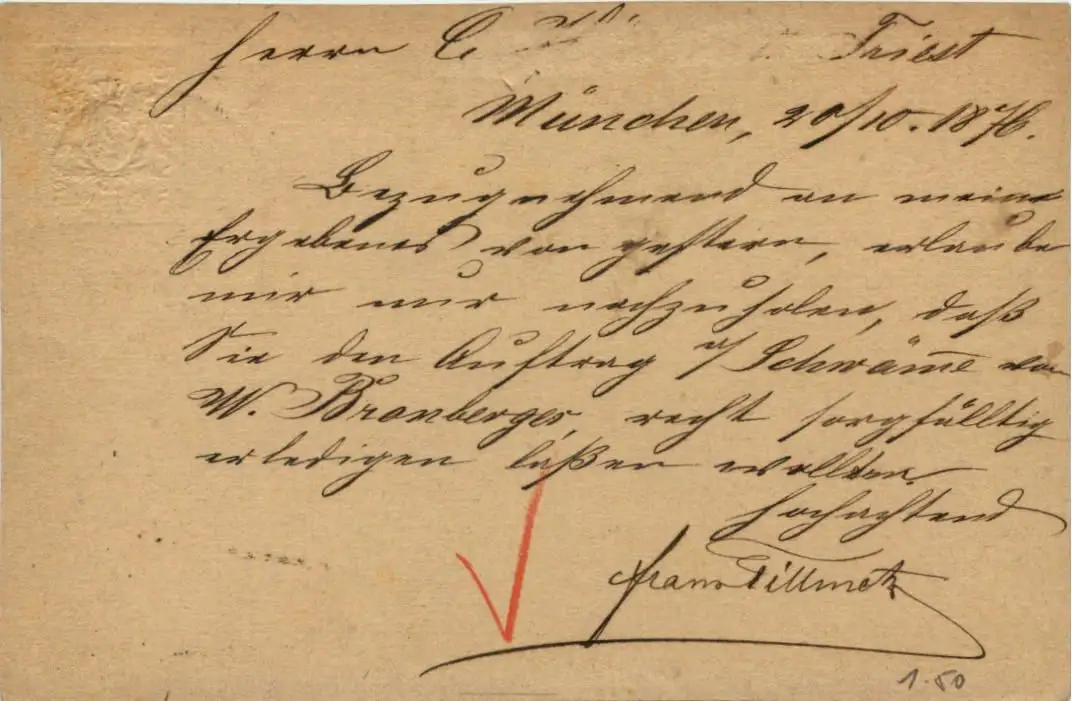 Herrn C Triest
München, 20/10. 1876.
Bezugnehmend an meine
Ergebenes von gestern, erlaube
mir nur nachzuholen, daß
Sie den Auftrag a/ Schwäm̅e von
M. Bronberger, recht sorgfälltig
erledigen laßen wollten.
Hochachtend
Franz Tillmetz
1.50